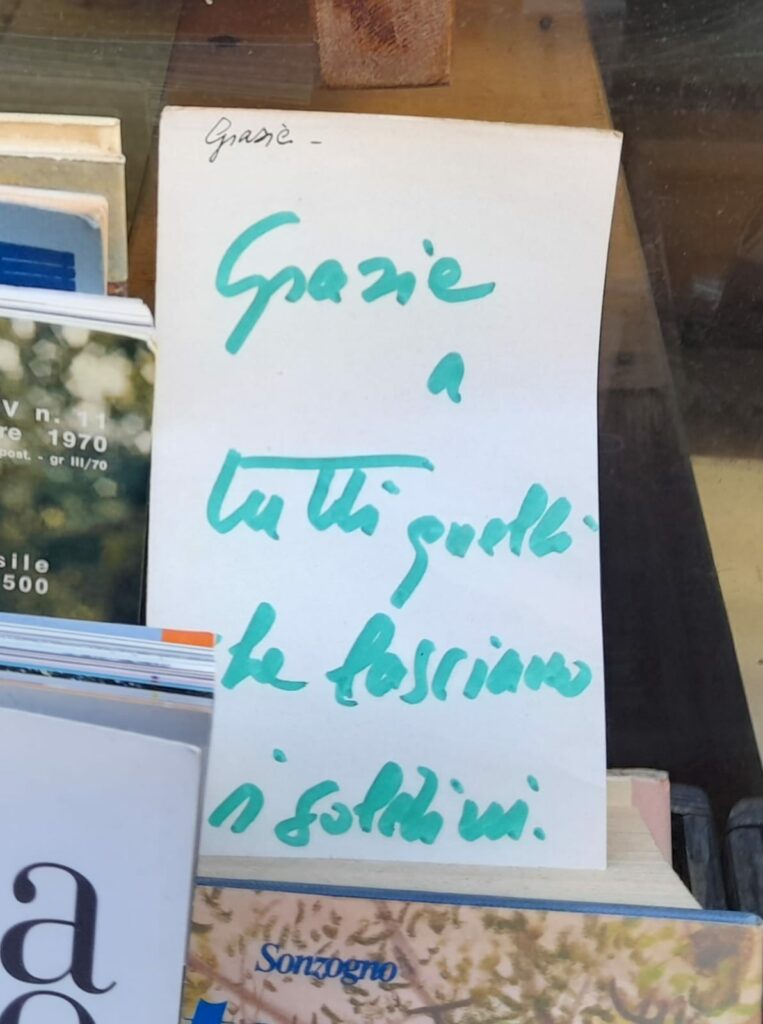 Grazie -
Grazie
a
tutti quelli
che lasciano
i soldini.
V n. 11
re 1970
post. - gr III/70
sile
500
a
Sonzogno